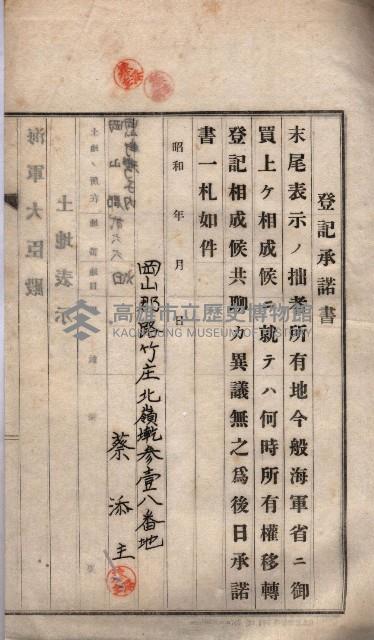 登記承諾書
末尾表示ノ拙者所有地今般海軍省ニ御
買上ケ相成候ニ就テハ何時所有權移轉
登記相成候共聊カ異議無之爲後日承諾
書一札如件
昭和 年 月 日
岡山郡路竹庄北嶺墘參壹八番地
蔡添主
土地表示
海軍大臣殿
高雄市立歷史博物館
KAOHSIUNG MUSEUM OF HISTORY